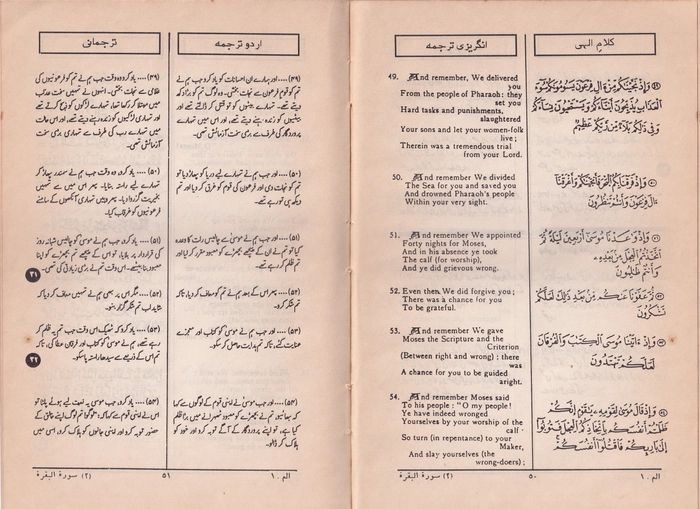 کلامِ الٰہی
وَإِذْ نَجَّيْنَاكُم مِّنْ ءَالِ فِرْعَوْنَ يَسُومُونَكُمْ سُوٓءَ
الْعَذَابِ يُذَبِّحُونَ أَبْنَآءَكُمْ وَيَسْتَحْيُونَ نِسَآءَكُمْ
وَفِي ذَٰلِكُم بَلَآءٌ مِّن رَّبِّكُمْ عَظِيمٌ
وَإِذْ فَرَقْنَا بِكُمُ الْبَحْرَ فَأَنجَيْنَاكُمْ وَأَغْرَقْنَا
ءَالَ فِرْعَوْنَ وَأَنتُمْ تَنظُرُونَ
وَإِذْ وَٰعَدْنَا مُوسَىٰ أَرْبَعِينَ لَيْلَةً ثُمَّ
اتَّخَذْتُمُ الْعِجْلَ مِن بَعْدِهِ
وَأَنتُمْ ظَٰلِمُونَ
ثُمَّ عَفَوْنَا عَنكُم مِّن بَعْدِ ذَٰلِكَ لَعَلَّكُمْ
تَشْكُرُونَ
وَإِذْ ءَاتَيْنَا مُوسَى الْكِتَٰبَ وَالْفُرْقَانَ
لَعَلَّكُمْ تَهْتَدُونَ
وَإِذْ قَالَ مُوسَىٰ لِقَوْمِهِ يَٰقَوْمِ إِنَّكُمْ
ظَلَمْتُمْ أَنفُسَكُم بِاتِّخَاذِكُمُ الْعِجْلَ فَتُوبُوٓا
إِلَىٰ بَارِئِكُمْ فَاقْتُلُوٓا أَنفُسَكُمْ
انگریزی ترجمہ
49. And remember, We delivered
you
From the people of Pharaoh: they
set you
Hard tasks and punishments,
slaughtered
Your sons and let your women-folk
live;
Therein was a tremendous trial
from your Lord.
50. And remember We divided
The Sea for you and saved you
And drowned Pharaoh's people
Within your very sight.
51. And remember We appointed
Forty nights for Moses,
And in his absence ye took
The calf (for worship),
And ye did grievous wrong.
52. Even then, We did forgive you;
There was a chance for you
To be grateful.
53. And remember We gave
Moses the Scripture and the
Criterion
(Between right and wrong) : there
was
A chance for you to be guided
aright.
54. And remember Moses said
To his people : "O my people!
Ye have indeed wronged
Yourselves by your worship of the
calf
So turn (in repentance) to your
Maker,
And slay yourselves (the
wrong-doers);
الم ۔ ۱
۵۰
(۲) سورۃ البقرۃ
اردو ترجمہ
(۴۹) .... اور ہمارے ان احسانات کو یاد کرو جب ہم نے
تم کو قوم فرعون سے نجات بخشی۔ وہ لوگ تم کو بڑا دکھ
دیتے تھے۔ تمہارے بیٹوں کو تو قتل کر ڈالتے تھے اور
بیٹیوں کو زندہ رہنے دیتے تھے۔ اور اس میں تمہارے
پروردگار کی طرف سے بڑی سخت آزمائش تھی۔
(۵۰) .... اور جب ہم نے تمہارے لیے دریا کو پھاڑ دیا تو
تم کو نجات دی اور فرعون کی قوم کو غرق کر دیا اور تم
دیکھ ہی تو رہے تھے۔
(۵۱) .... اور جب ہم نے موسیٰ سے چالیس رات کا وعدہ
کیا تو تم نے ان کے پیچھے بچھڑے کو معبود مقرر کر لیا اور
تم ظلم کر رہے تھے۔
(۵۲) .... پھر اس کے بعد ہم نے تم کو معاف کر دیا، تاکہ
تم شکر کرو۔
(۵۳) .... اور جب ہم نے موسیٰ کو کتاب اور معجزے
عنایت کئے، تاکہ تم ہدایت حاصل کر سکو۔
(۵۴) .... اور جب موسیٰ نے اپنی قوم کے لوگوں سے کہا
کہ بھائیو، تم نے بچھڑے کو معبود ٹھہرانے میں بڑا ظلم
کیا ہے، تو اپنے پروردگار کے آگے توبہ کرو اور خود کو
ہلاک کر ڈالو۔
ترجمانی
(۴۹) .... یاد کرو وہ وقت جب ہم نے تم کو فرعونیوں کی
غلامی سے نجات بخشی۔ انہوں نے تمہیں سخت عذاب
میں مبتلا کر رکھا تھا، تمہارے لڑکوں کو ذبح کرتے تھے
اور تمہاری لڑکیوں کو زندہ رہنے دیتے تھے، اور اس حالت
میں تمہارے رب کی طرف سے تمہاری بڑی سخت
آزمائش تھی۔
(۵۰) .... یاد کرو، وہ وقت جب ہم نے سمندر پھاڑ کر
تمہارے لیے راستہ بنایا۔ پھر اس میں سے تمہیں
بخیریت گزروا دیا۔ پھر وہیں تمہاری آنکھوں کے سامنے
فرعونیوں کو غرقاب کیا۔
(۵۱) .... یاد کرو، جب ہم نے موسیٰ کو چالیس شبانہ روز
کی قرارداد پر بلایا، تو اس کے پیچھے تم بچھڑے کو اپنا
معبود بنا بیٹھے۔ اس وقت تم نے بڑی زیادتی کی تھی۔
۳۱
(۵۲) .... مگر اس پر بھی ہم نے تمہیں معاف کر دیا کہ
شاید اب تم شکر گزار بنو۔
(۵۳) .... یاد کرو کہ ٹھیک اس وقت جب تم یہ ظلم کر
رہے تھے، ہم نے موسیٰ کو کتاب اور فرقان عطا کی، تاکہ
تم اس کے ذریعے سے سیدھا راستہ پا سکو۔
۳۲
(۵۴) .... یاد کرو، جب موسیٰ یہ نعمت لیے ہوئے پلٹا تو
اس نے اپنی قوم سے کہا کہ "لوگو! تم لوگ اپنے خالق کے
حضور توبہ کرو اور اپنی جانوں کو ہلاک کرو، اسی میں
الم ۔ ۱
۵۱
(۲) سورۃ البقرۃ